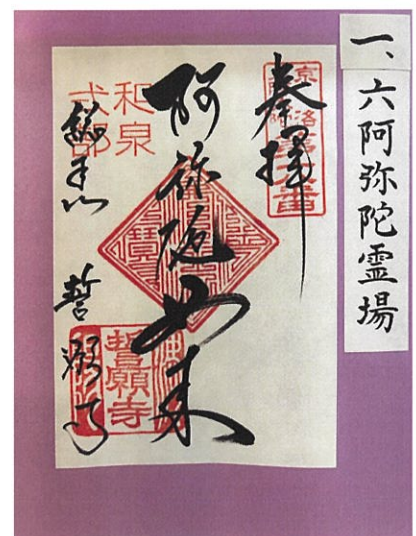 一、六阿弥陀霊場
京洛
奉拝
阿弥陀如来
和泉
式部
総本山 誓願寺
誓願寺